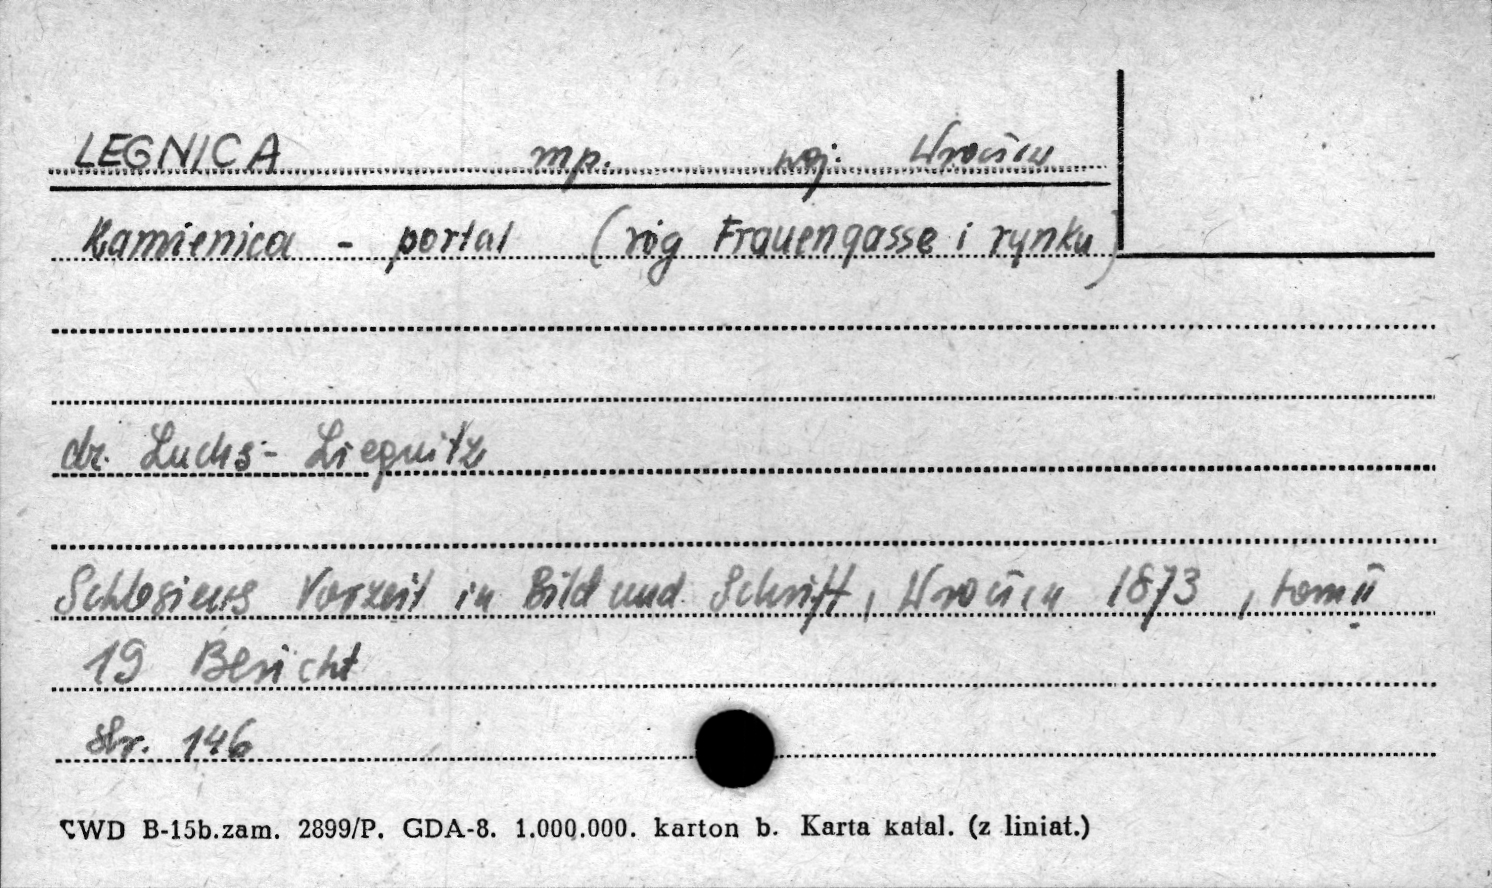 LEGNICA mp. woj. Wrocław
Kamienica - portal (róg Frauengasse i rynku)
dr. Luchs - Liegnitz
Schlesiens Vorzeit in Bild und Schrift, Wrocław 1873, tom II
19 Bericht
str. 146
CWD B-15b.zam. 2899/P. GDA-8. 1.000.000. karton b. Karta katal. (z liniat.)